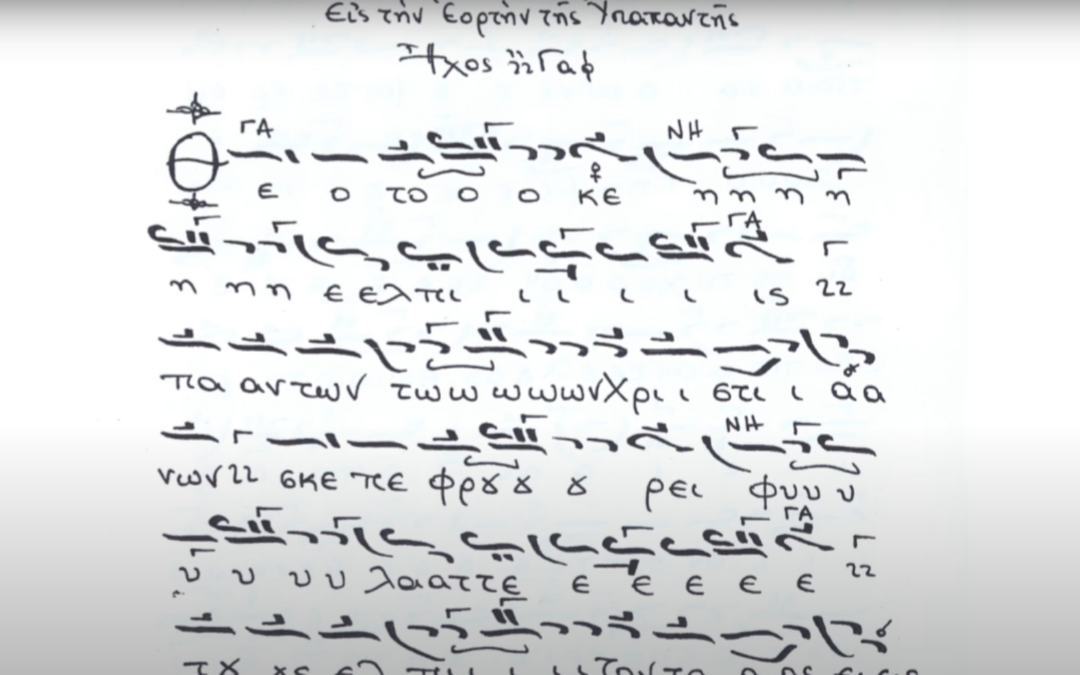 Εἰς τὴν Ἑορτὴν τῆς Ὑπαπαντῆς
Ἦχος Γα φ
ΓΑ ΝΗ
ε ο το ο ο κε η η η η
ΓΑ
η η η ε ελπι ι ι ι ι ις
πα αν των τω ω ω ω ων Χρι ι στι ι α α
ΝΗ
νων σκε πε φρȣ ȣ ȣ ρει φυ υ υ
ΓΑ
υ υ υ υ λα ατ τε ε ε ε ε ε